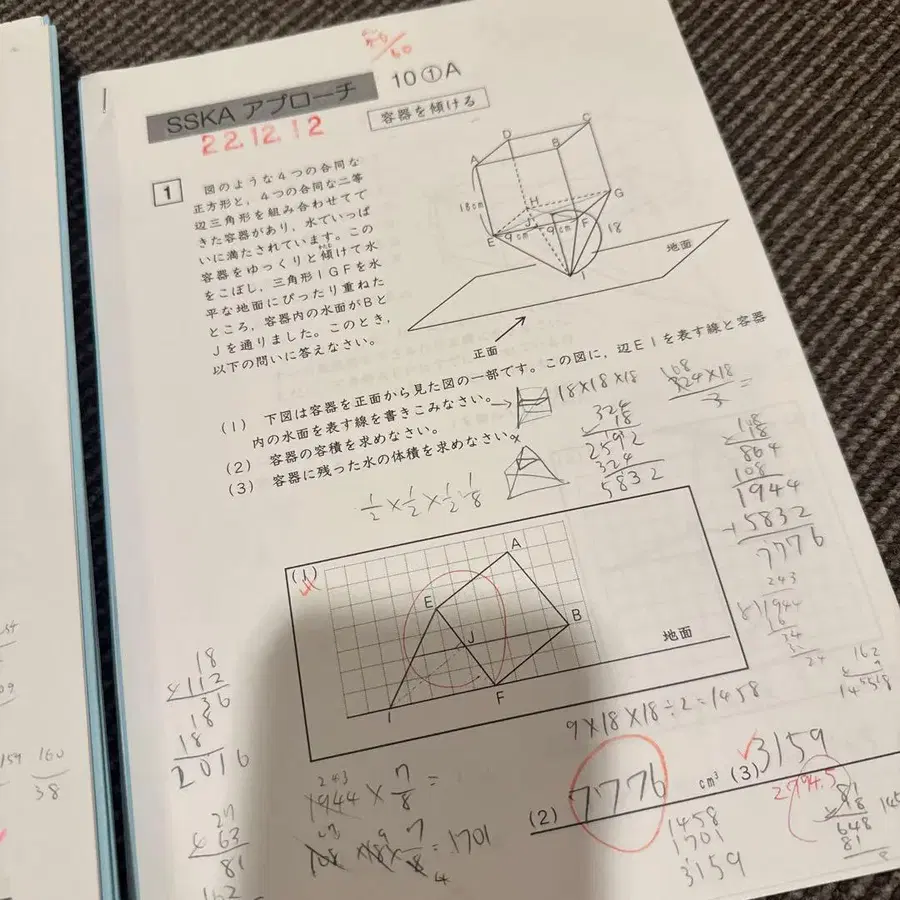 SSKA アプローチ
10①A
容器を傾ける
22.12.12
1
図のような4つの合同な
正方形と，4つの合同な二等
辺三角形を組み合わせてで
きた容器があり，水でいっぱ
いに満たされています。この
容器をゆっくりと傾けて水
をこぼし，三角形IGFを水
平な地面にぴったり重ねた
ところ，容器内の水面がBと
Jを通りました。このとき，
以下の問いに答えなさい。
A
B
C
D
E
F
G
H
I
J
18cm
9cm
9cm
18
地面
正面
(1) 下図は容器を正面から見た図の一部です。この図に，辺EIを表す線と容器
内の水面を表す線を書きこみなさい。
(2) 容器の容積を求めなさい。
(3) 容器に残った水の体積を求めなさい。
18×18×18
324
18
2592
324
5832
108
324×18
3
=
108
×18
864
108
1944
+5832
7776
243
8)1944
(1)
A
E
B
J
I
F
地面
9×18×18÷2=1458
18
×112
36
18
18
2016
27
×63
81
162
243
1944×7/8=
108×18×7/8=1701
(2) 7776 cm³
(3) 3159
1458
1701
3159
81
648
81
160
38